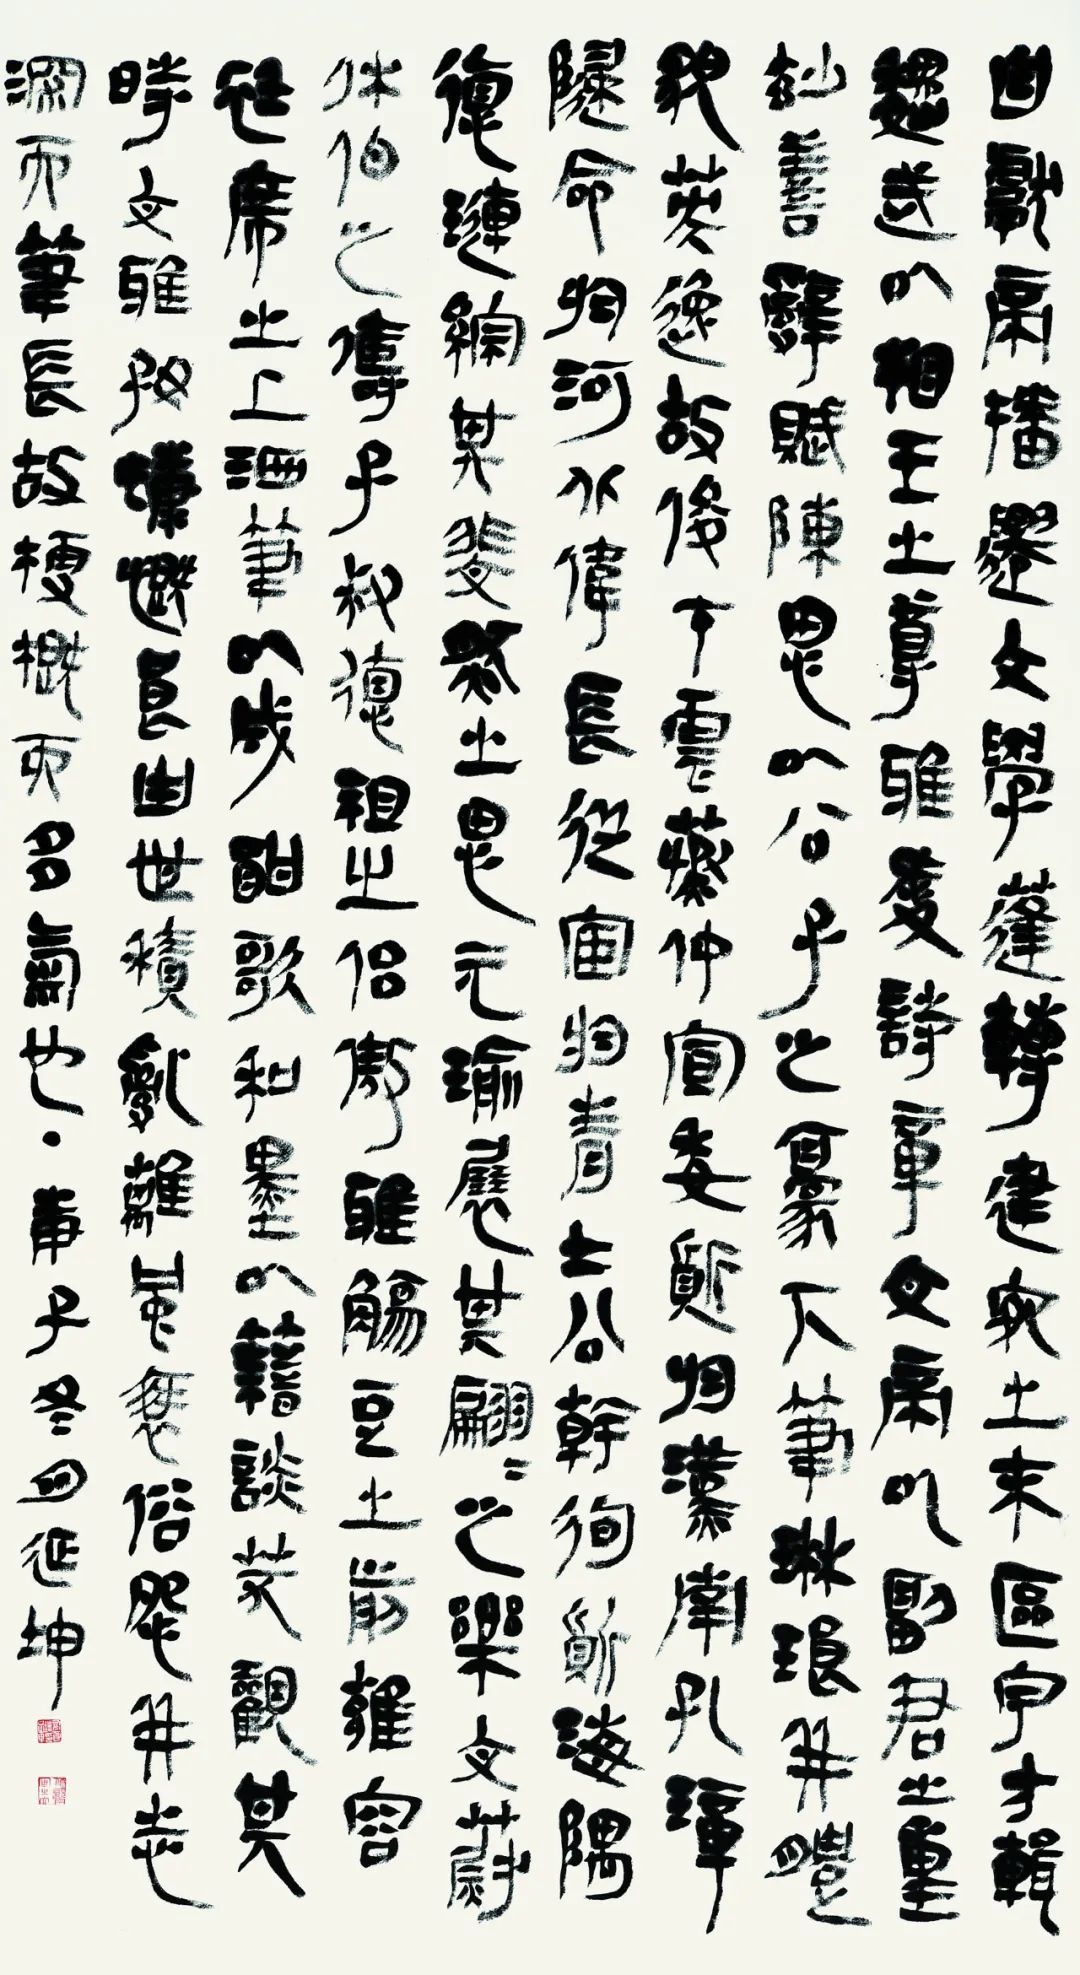 自獻帝播遷文學蓬轉建安之末區宇方輯
魏武以相王之尊雅愛詩章文帝以副君之重
妙善辭賦陳思以公子之豪下筆琳琅並體
貌英逸故俊才雲蒸仲宣委質於漢南孔璋
歸命於河北偉長從宦於青土公幹徇質海隅
德璉綜其斐然之思元瑜展其翩=之樂文蔚
休伯之儔子叔德祖之侶傲雅觴豆之前雍容
衽席之上洒筆以成酣歌和墨以藉談笑觀其
時文雅好慷慨良由世積亂離風衰俗怨並志
深而筆長故梗概而多氣也·庚子冬月延坤